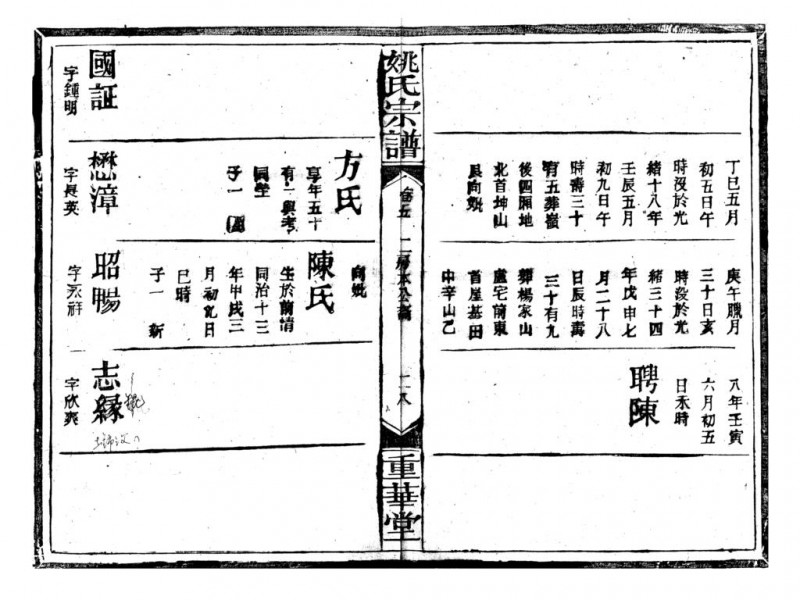 丁巳五月
初五日午
時沒於光
緒十八年
壬辰五月
初九日午
時壽三十
有五葬嶺
後四厢地
北首坤山
艮向
庚午臘月
三十日亥
時殁於光
緒三十四
年戊申七
月二十八
日辰時壽
三十有九
葬楊家山
盧宅前東
首崖基田
中辛山乙
八年壬寅
六月初五
日未時
聘陳
姚氏宗譜
卷五
二房
公
一八
重華堂
方氏
享年五十
有二與考
同塋
子一
向
陳氏
生於前清
同治十三
年甲戌三
月初九日
巳時
子一 新
國証
字鍾明
懋漳
字長英
昭暢
字永祥
志緣
字欣爽